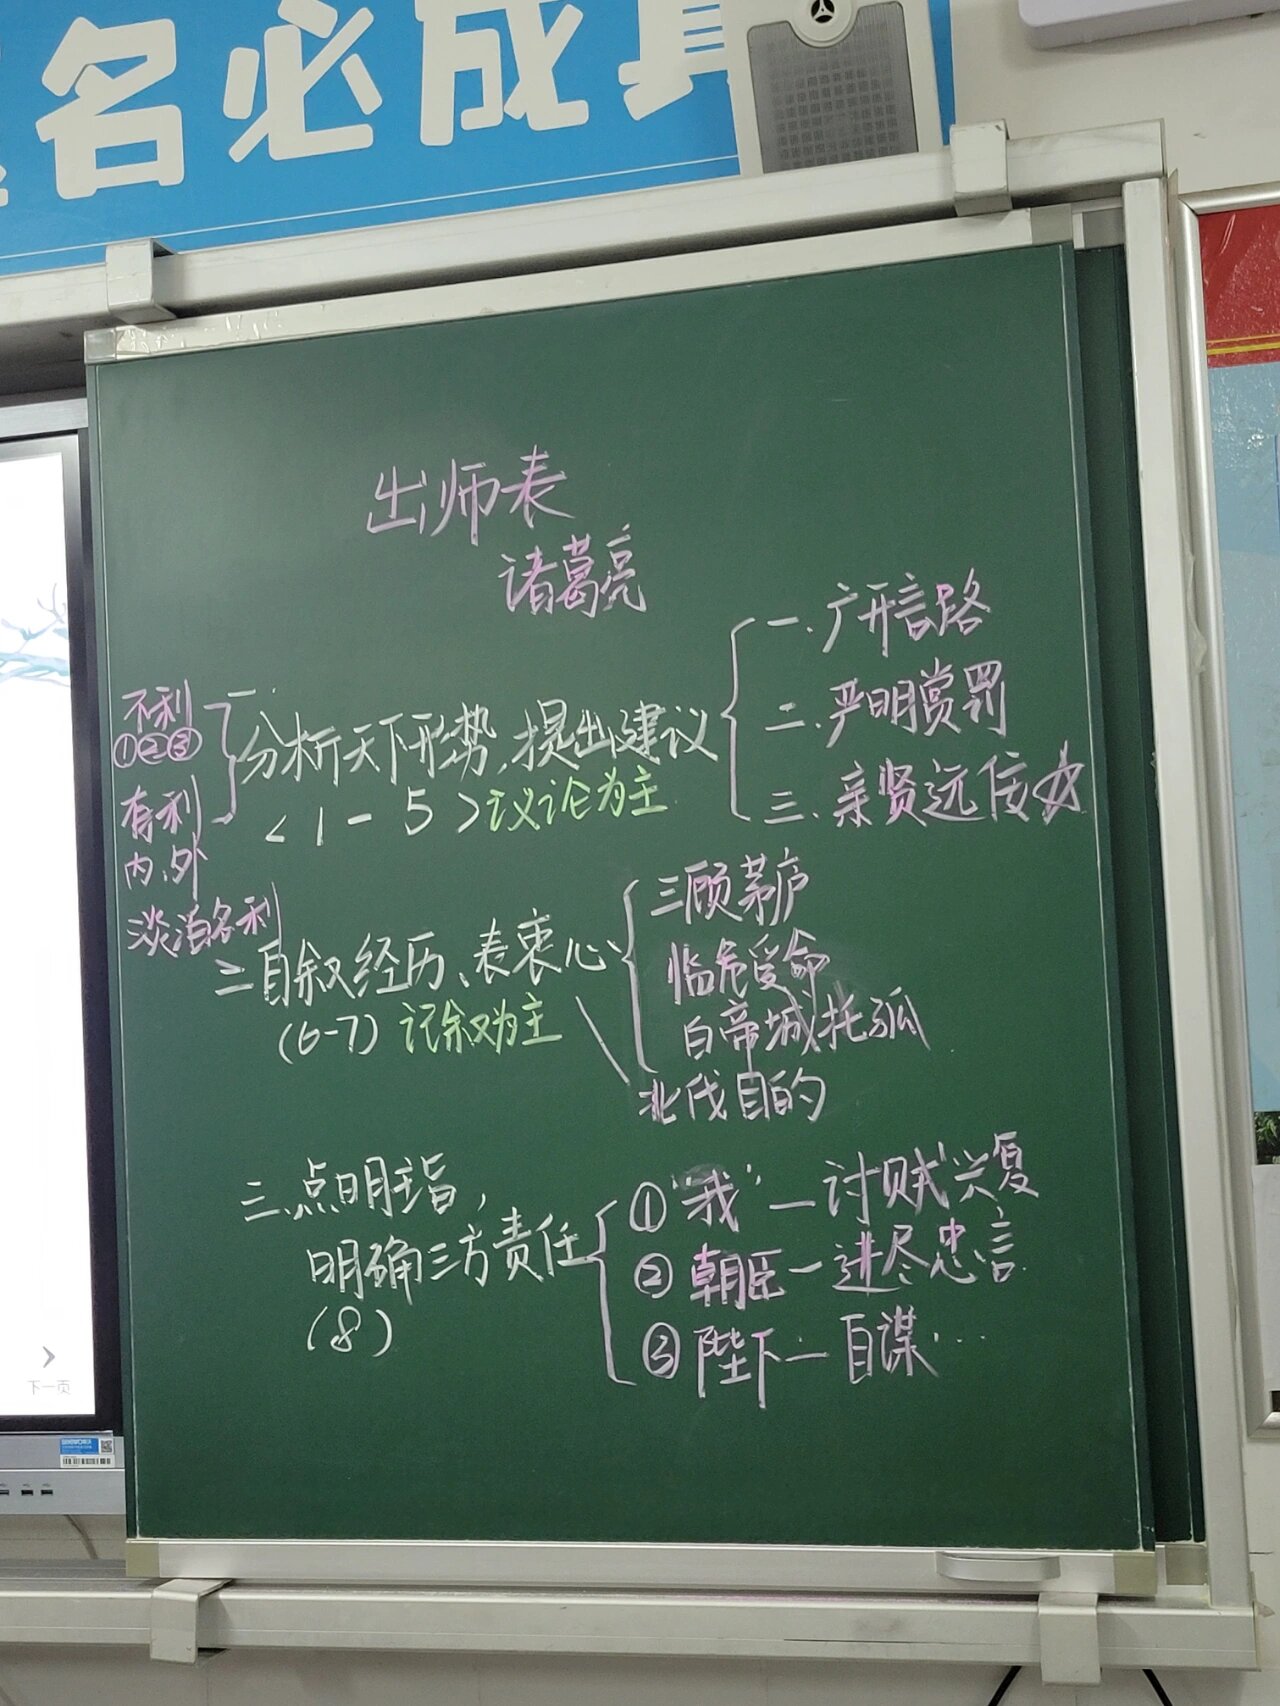 名必成真
出师表
诸葛亮
不利
①②③
有利
内、外
淡泊名利
一.
分析天下形势,提出建议
<1-5>议论为主
一.广开言路
二.严明赏罚
三.亲贤远佞☆
二自叙经历、表衷心
(6-7) 记叙为主
三顾茅庐
临危受命
白帝城托孤
北伐目的
三.点明主旨,
明确三方责任
(8)
①"我"—讨贼兴复
②朝臣—进尽忠言
③陛下—自谋…
下一页